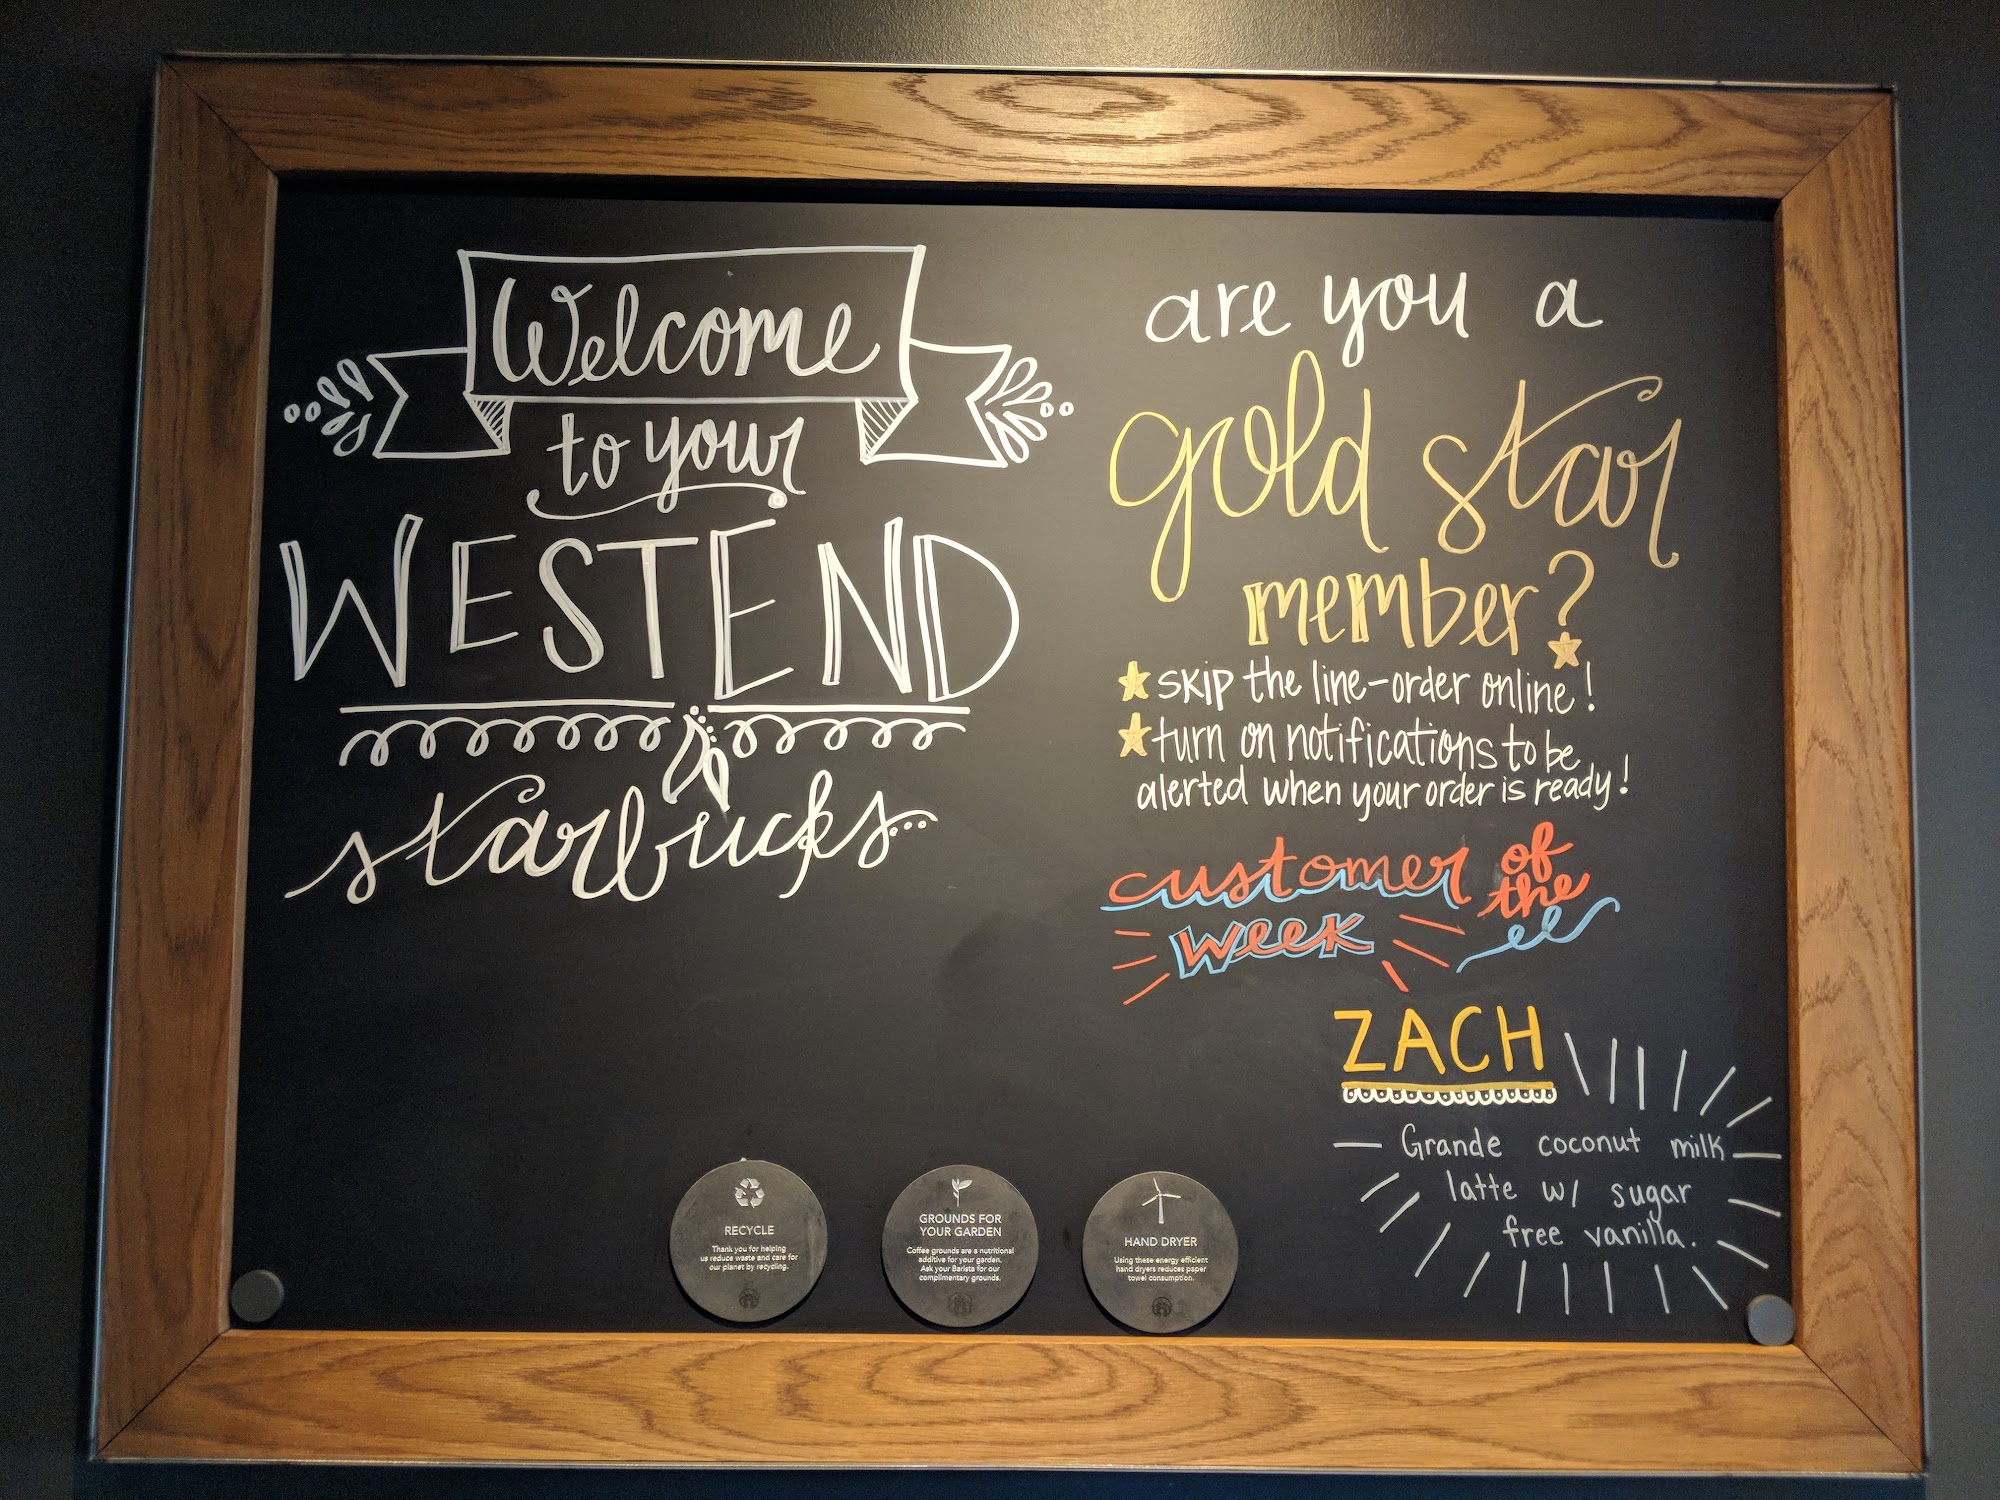 Welcome
to your
WESTEND
starbucks...
are you a
gold star
member?
skip the line-order online!
turn on notifications to be
alerted when your order is ready!
customer of
the
week
ZACH
Grande coconut milk
latte w/ sugar
free vanilla.
RECYCLE
Thank you for helping
us reduce waste and care for
our planet by recycling.
GROUNDS FOR
YOUR GARDEN
Coffee grounds are a nutritional
additive for your garden.
Ask your Barista for our
complimentary grounds.
HAND DRYER
Using these energy efficient
hand dryers reduces paper
towel consumption.